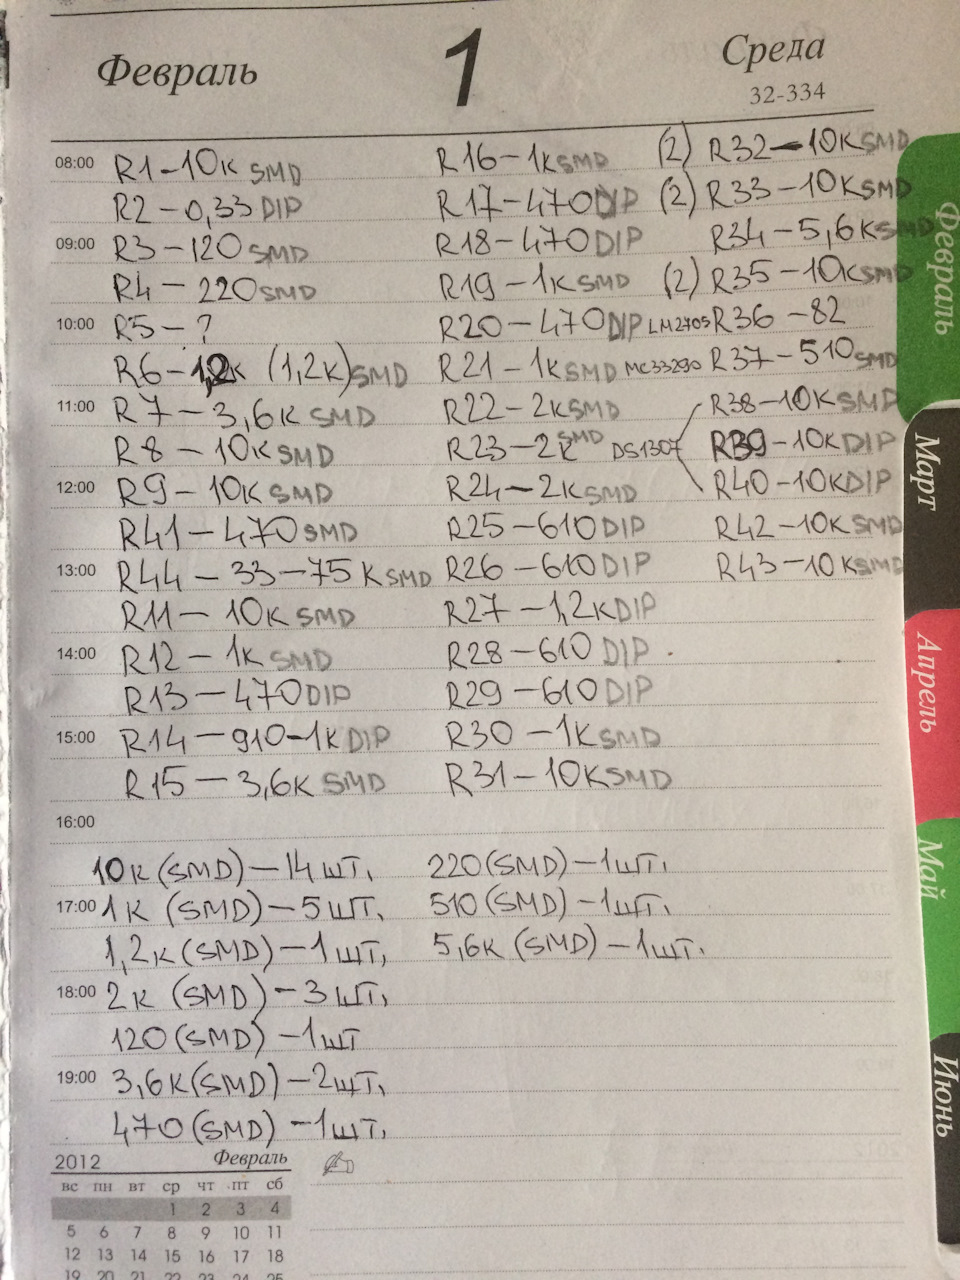 Февраль 1 Среда
32-334
08:00 R1-10К SMD R16-1К SMD (2) R32-10К SMD
R2-0,33 DIP R17-470 DIP (2) R33-10К SMD
09:00 R3-120 SMD R18-470 DIP R34-5,6К SMD
R4-220 SMD R19-1К SMD (2) R35-10К SMD
10:00 R5-? R20-470 DIP LM2705 R36-82
R6-1,2К (1,2К) SMD R21-1К SMD MC33290 R37-510 SMD
11:00 R7-3,6К SMD R22-2К SMD R38-10К SMD
R8-10К SMD R23-2К SMD DS1307 R39-10К DIP
12:00 R9-10К SMD R24-2К SMD R40-10К DIP
R41-470 SMD R25-610 DIP R42-10К SMD
13:00 R44-33-75 К SMD R26-610 DIP R43-10К SMD
R11-10К SMD R27-1,2К DIP
14:00 R12-1К SMD R28-610 DIP
R13-470 DIP R29-610 DIP
15:00 R14-910-1К DIP R30-1К SMD
R15-3,6К SMD R31-10К SMD
16:00
10К (SMD)-14 шт, 220 (SMD)-1шт,
17:00 1К (SMD)-5 шт, 510 (SMD)-1шт,
1,2К (SMD)-1 шт, 5,6К (SMD)-1шт.
18:00 2К (SMD)-3 шт,
120 (SMD)-1 шт
19:00 3,6К (SMD)-2шт,
470 (SMD)-1шт,
2012 Февраль
вс пн вт ср чт пт сб
1 2 3 4
5 6 7 8 9 10 11
12 13 14 15 16 17 18
19 20 21 22 23 24 25
Февраль
Март
Апрель
Май
Июнь